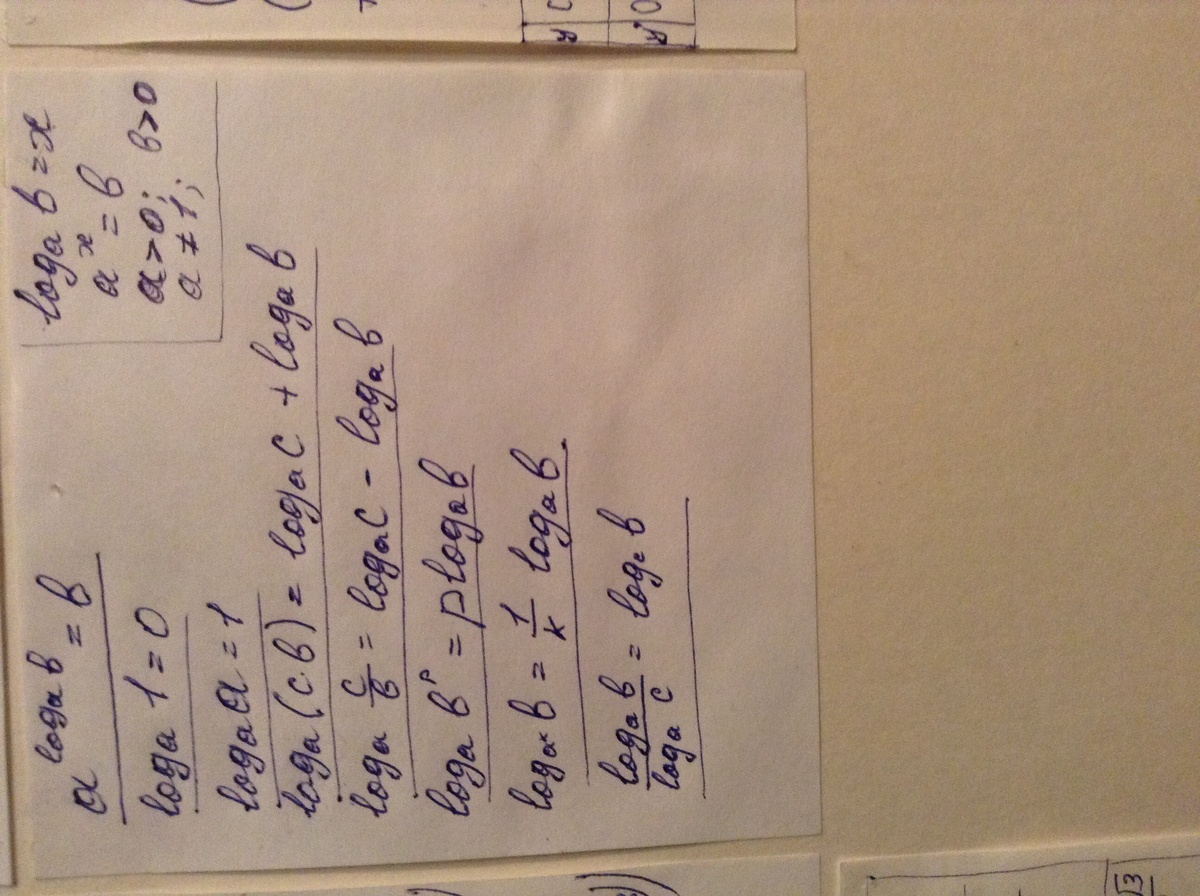 a^(log_a b) = b
log_a b = x
a^x = b
a > 0; b > 0
a ≠ 1;
log_a 1 = 0
log_a a = 1
log_a (c·b) = log_a c + log_a b
log_a c/b = log_a c - log_a b
log_a b^p = p log_a b
log_(a^k) b = 1/k log_a b
log_a b / log_a c = log_c b
y
y
√3